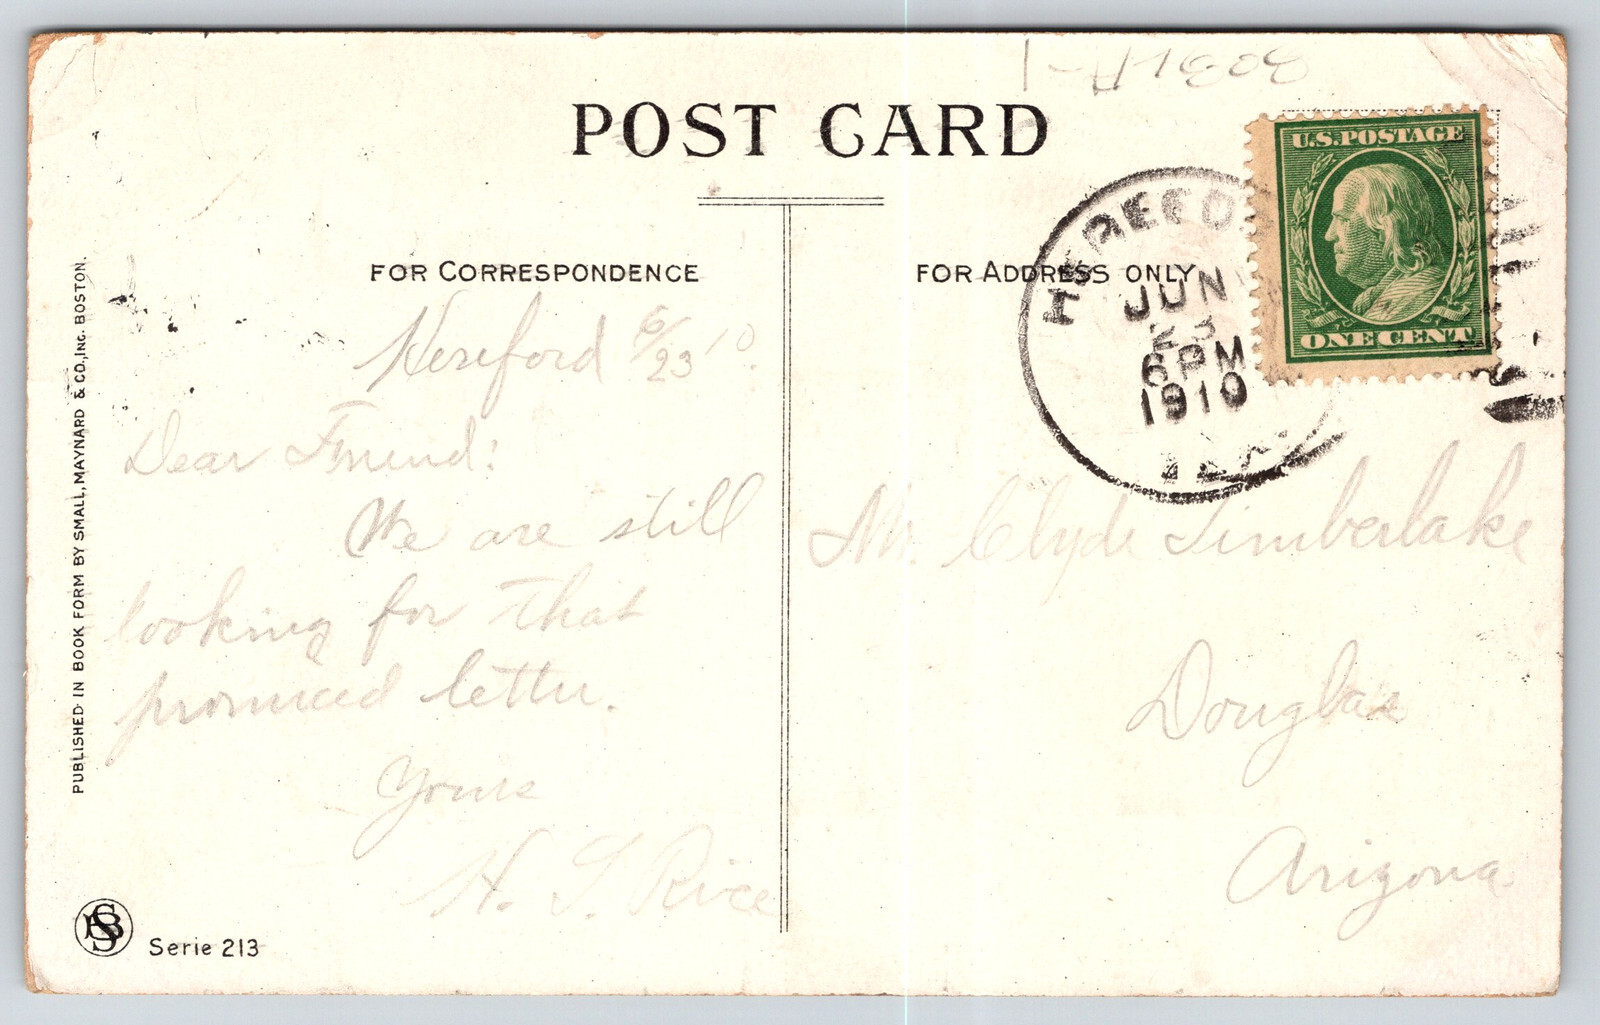 POST CARD
FOR CORRESPONDENCE
FOR ADDRESS ONLY
U.S. POSTAGE
ONE CENT
JUN
23
6 PM
1910
TEX.
Hereford 6/23 '10.
Dear Friend:
We are still
looking for that
promised letter.
Yours
H. S. Rice
Mr. Clyde Timberlake
Douglas
Arizona
PUBLISHED IN BOOK FORM BY SMALL, MAYNARD & CO., INC. BOSTON.
Serie 213